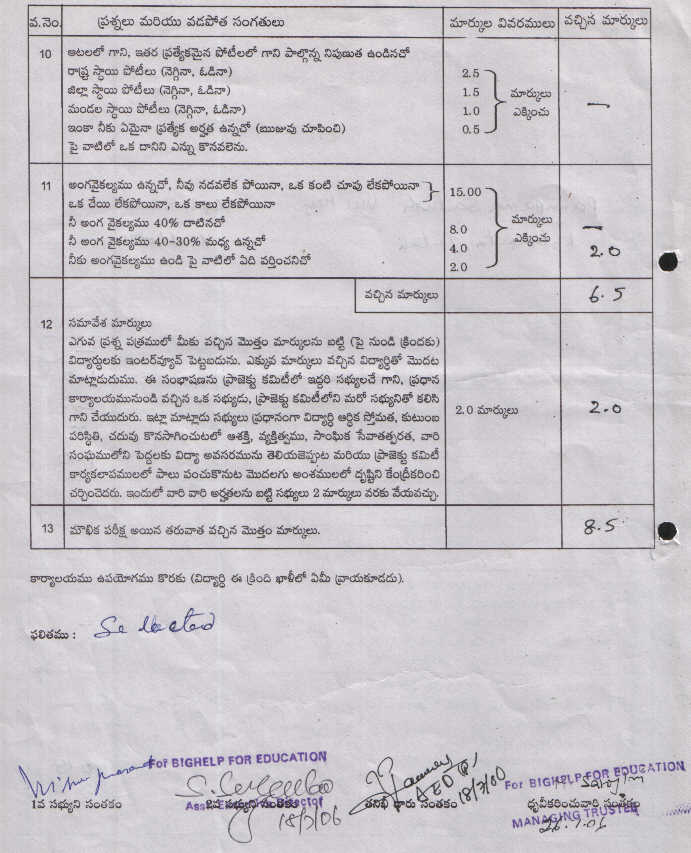 వ.నెం. ప్రశ్నలు మరియు వడపోత సంగతులు మార్కుల వివరములు వచ్చిన మార్కులు
10 ఆటలలో గాని, ఇతర ప్రత్యేకమైన పోటీలలో గాని పాల్గొన్న నిపుణుత ఉండినచో
రాష్ట్ర స్థాయి పోటీలు (నెగ్గినా, ఓడినా) 2.5
జిల్లా స్థాయి పోటీలు (నెగ్గినా, ఓడినా) 1.5 మార్కులు
మండల స్థాయి పోటీలు (నెగ్గినా, ఓడినా) 1.0 ఎక్కించు —
ఇంకా నీకు ఏమైనా ప్రత్యేక అర్హత ఉన్నచో (ఋజువు చూపించి) 0.5
పై వాటిలో ఒక దానిని ఎన్ను కొనవలెను.
11 అంగవైకల్యము ఉన్నచో, నీవు నడవలేక పోయినా, ఒక కంటి చూపు లేకపోయినా 15.00
ఒక చేయి లేకపోయినా, ఒక కాలు లేకపోయినా
నీ అంగ వైకల్యము 40% దాటినచో 8.0 మార్కులు —
నీ అంగ వైకల్యము 40-30% మధ్య ఉన్నచో 4.0 ఎక్కించు 2.0
నీకు అంగవైకల్యము ఉండి పై వాటిలో ఏది వర్తించనిచో 2.0
వచ్చిన మార్కులు 6.5
12 సమావేశ మార్కులు
ఎగువ ప్రశ్న పత్రములో మీకు వచ్చిన మొత్తం మార్కులను బట్టి (పై నుండి క్రిందకు)
విద్యార్థులకు ఇంటర్వ్యూవ్ పెట్టబడును. ఎక్కువ మార్కులు వచ్చిన విద్యార్థితో మొదట
మాట్లాడుదుము. ఈ సంభాషణను ప్రాజెక్టు కమిటీలో ఇద్దరి సభ్యులచే గాని, ప్రధాన
కార్యాలయమునుండి వచ్చిన ఒక సభ్యుడు, ప్రాజెక్టు కమిటీలోని మరో సభ్యునితో కలిసి
గాని చేయుదురు. ఇట్లా మాట్లాడు సభ్యులు ప్రధానంగా విద్యార్థి ఆర్థిక స్తోమత, కుటుంబ 2.0 మార్కులు 2.0
పరిస్థితి, చదువు కొనసాగించుటలో ఆశక్తి, వ్యక్తిత్వము, సాంఘిక సేవాతత్పరత, వారి
సంఘములోని పెద్దలకు విద్యా అవసరమును తెలియజెప్పుట మరియు ప్రాజెక్టు కమిటీ
కార్యకలాపములలో పాలు పంచుకొనుట మొదలగు అంశములలో దృష్టిని కేంద్రీకరించి
చర్చించెదరు. ఇందులో వారి వారి అర్హతలను బట్టి సభ్యులు 2 మార్కులు వరకు వేయవచ్చు.
13 మౌఖిక పరీక్ష అయిన తరువాత వచ్చిన మొత్తం మార్కులు. 8.5
కార్యాలయము ఉపయోగము కొరకు (విద్యార్థి ఈ క్రింది ఖాళీలో ఏమీ వ్రాయకూడదు).
ఫలితము : Selected
For BIGHELP FOR EDUCATION
For BIGHELP FOR EDUCATION
1వ సభ్యుని సంతకం 2వ సభ్యుని సంతకం తనిఖీ దారు సంతకం 18/7/06 ధృవీకరించువారి సంతకం
18/7/06 MANAGING TRUSTEE